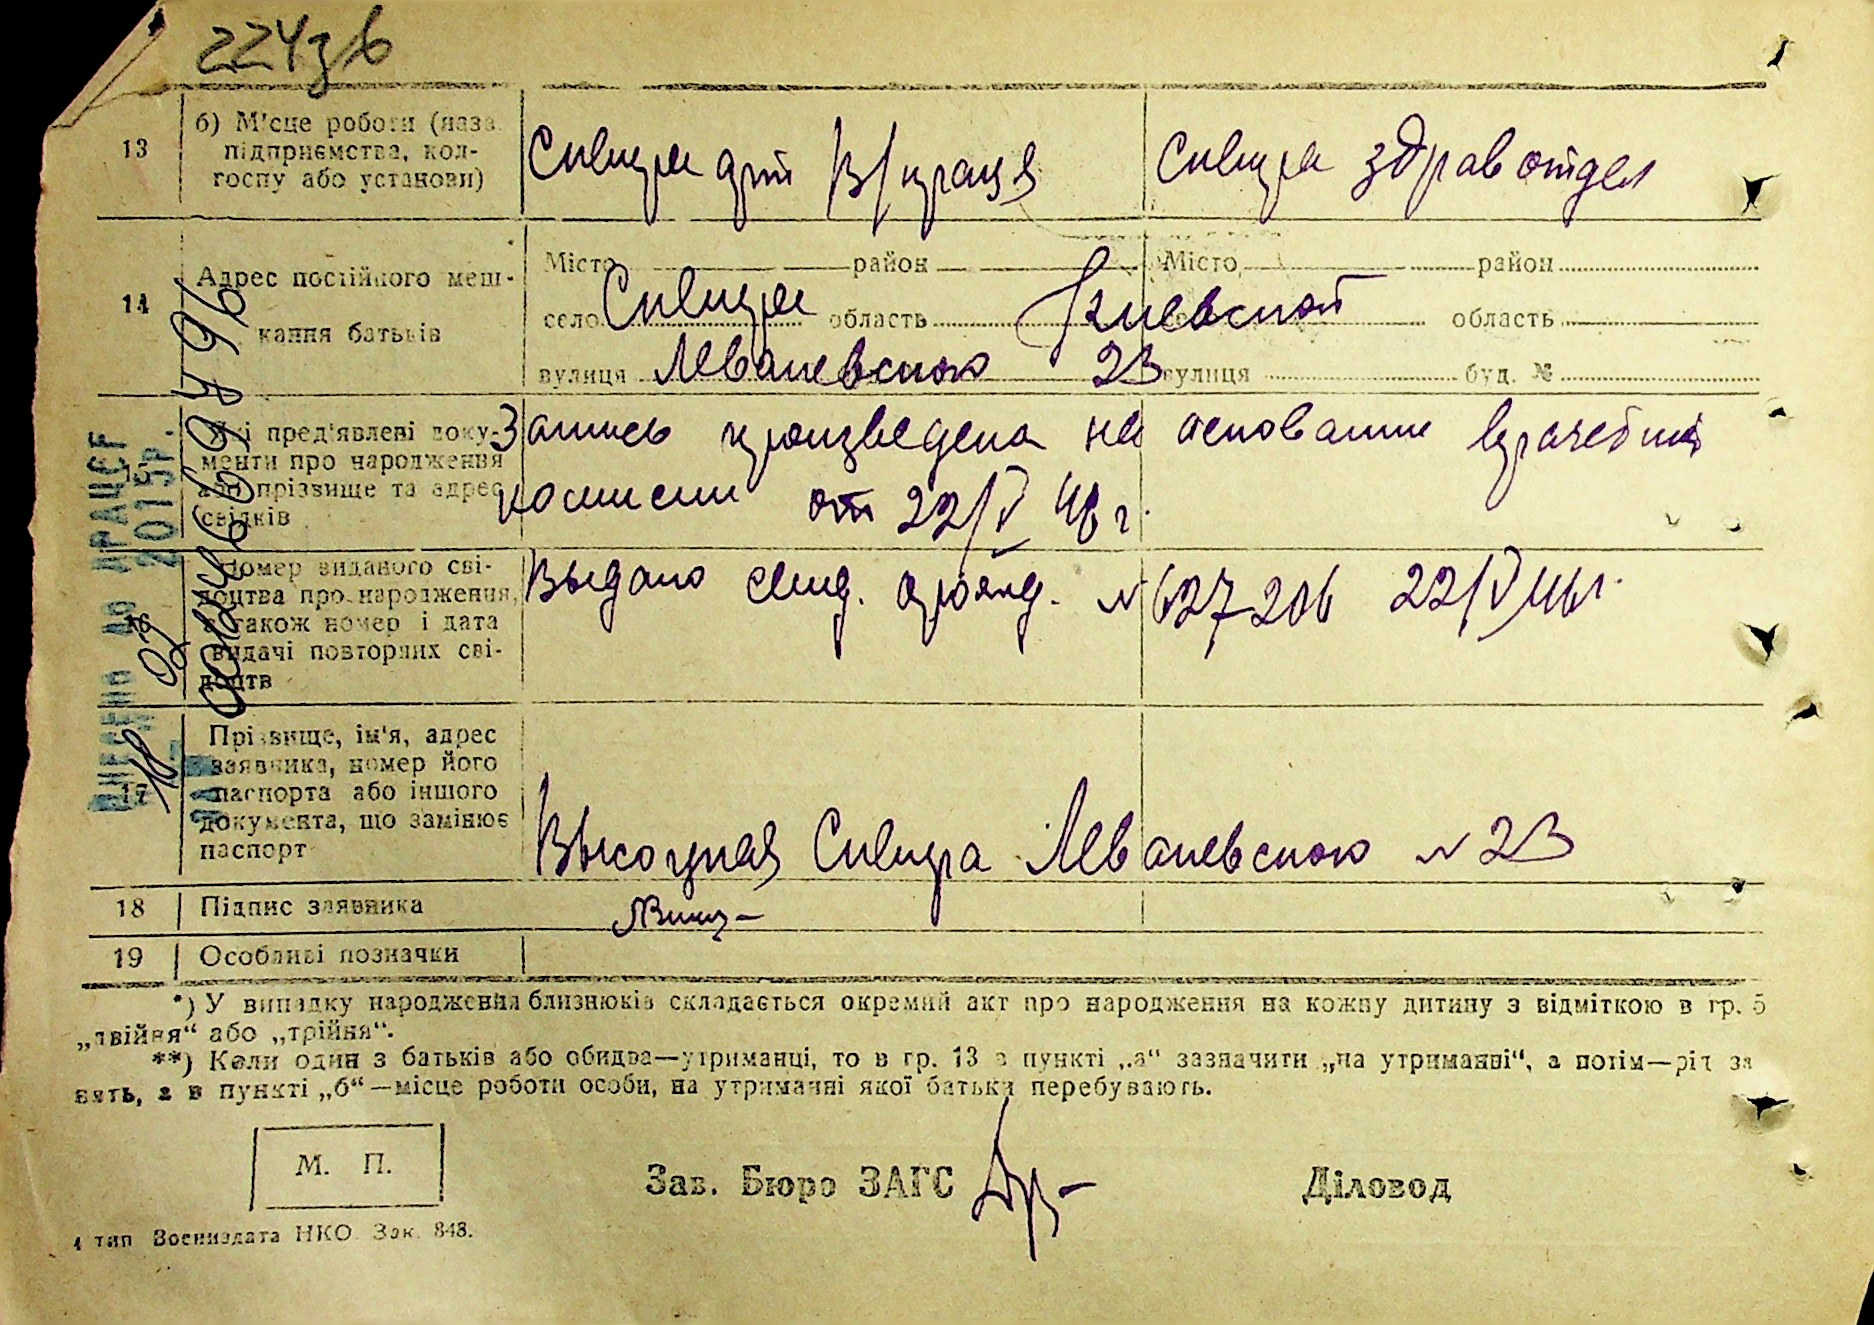 224зв
13
б) М'сце роботи (назв.
підприємства, кол-
госпу або установи)
Сквира В/части
Сквира здравотдел
14
Адрес постійного меш-
кання батьків
Місто район
Місто район
село Сквира область Киевской
область
вулиця Леваневского 23
вулиця буд. №
Які пред'явлені доку-
менти про народження
або прізвище та адрес
свідків
Запись произведена на основании врачебной
комиссии от 22/V 46 г.
16
Номер виданого сві-
доцтва про народження,
а також номер і дата
видачі повторних сві-
доцтв
Выдано свид. № 627206 22/V 46г.
17
Прізвище, ім'я, адрес
заявника, номер його
паспорта або іншого
документа, що замінює
паспорт
Высоцкая Сквира Леваневского № 23
18
Підпис заявника
19
Особливі позначки
*) У випадку народження близнюків складається окремий акт про народження на кожну дитину з відміткою в гр. 5
„двійня“ або „трійня“.
**) Коли один з батьків або обидва—утриманці, то в гр. 13 в пункті „а“ зазначити „на утриманні“, а потім—рід за
нять, а в пункті „б“—місце роботи особи, на утриманні якої батьки перебувають.
М. П.
Зав. Бюро ЗАГС
Діловод
4 тип Воениздата НКО. Зак. 848.
ВНЕСЕНО ДО ДРАЦСГ
18 02 2015р.